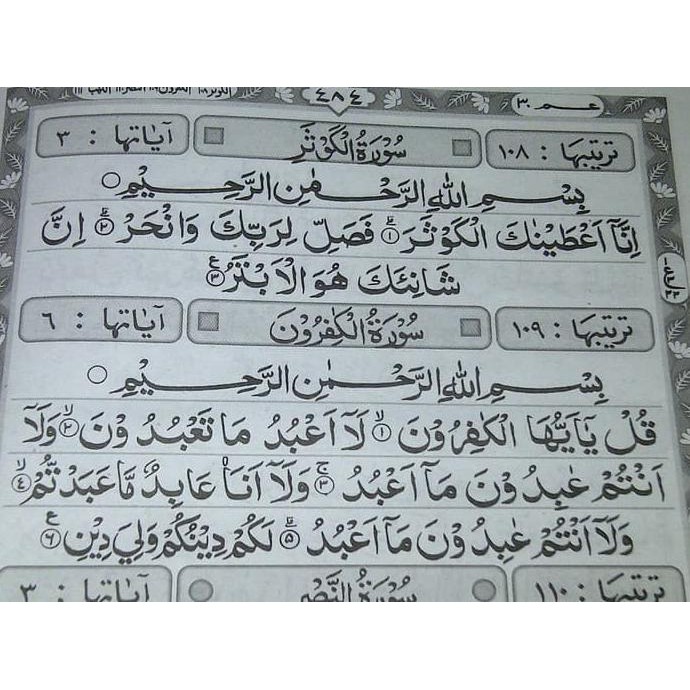 عـم ٣٠ ٤٨٤ الكوثر ١٠٨
ترتيبها : ١٠٨ سُوْرَةُ الْكَوْثَرِ آيَاتها : ٣
بِسْمِ اللهِ الرَّحْمٰنِ الرَّحِيْمِ ○
اِنَّآ اَعْطَيْنٰكَ الْكَوْثَرَ ۗ ① فَصَلِّ لِرَبِّكَ وَانْحَرْ ۗ ② اِنَّ
شَانِئَكَ هُوَ الْاَبْتَرُ ع ③
ترتيبها : ١٠٩ سُوْرَةُ الْكٰفِرُوْنَ آيَاتها : ٦
بِسْمِ اللهِ الرَّحْمٰنِ الرَّحِيْمِ ○
قُلْ يٰٓاَيُّهَا الْكٰفِرُوْنَ ۙ ① لَآ اَعْبُدُ مَا تَعْبُدُوْنَ ۙ ② وَلَآ
اَنْتُمْ عٰبِدُوْنَ مَآ اَعْبُدُ ۚ ③ وَلَآ اَنَا۠ عَابِدٌ مَّا عَبَدْتُّمْ ۙ ④
وَلَآ اَنْتُمْ عٰبِدُوْنَ مَآ اَعْبُدُ ۗ ⑤ لَكُمْ دِيْنُكُمْ وَلِيَ دِيْنِ ع ⑥
ترتيبها : ١١٠ سُوْرَةُ النَّصْرِ آيَاتها : ٣